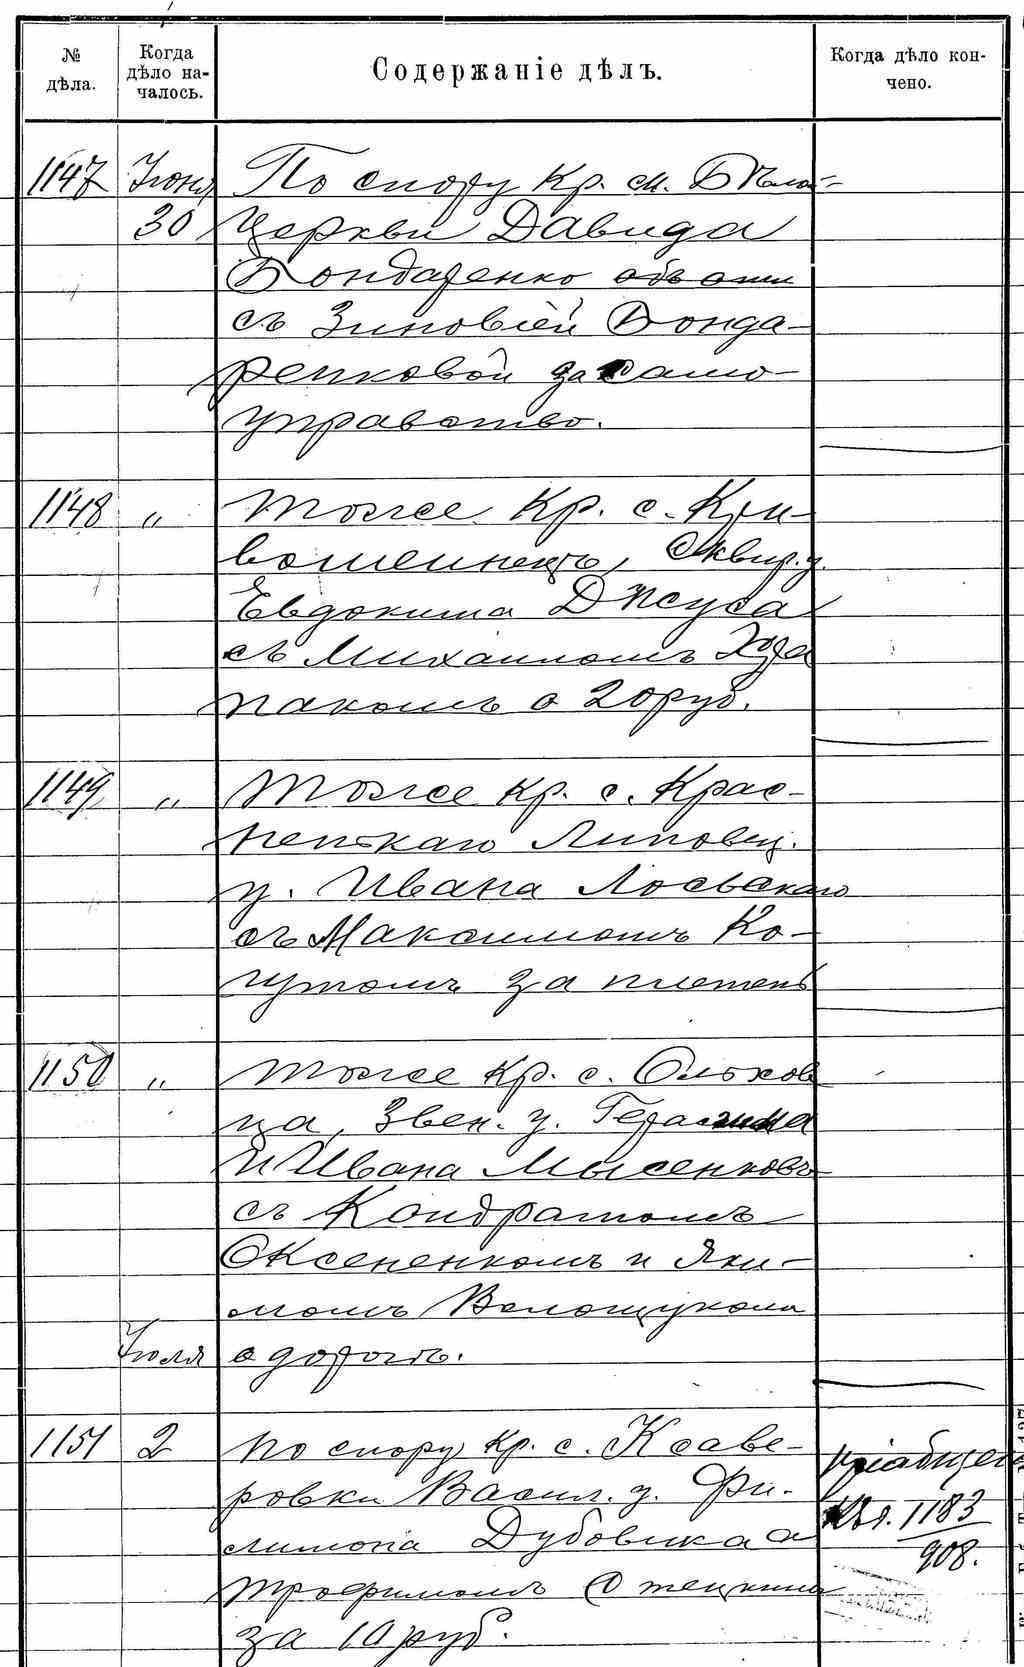 № дѣла.
Когда дѣло началось.
Содержаніе дѣлъ.
Когда дѣло кончено.
1147 Іюня По спору Кр. м. Бѣлой-
30 Церкви Давида
Бондаренко
съ Зиновіей Бонда-
ренковой за само-
управство.
1148 „ тоже Кр. с. Кри-
вошеинецъ, Сквир. у.
Евдокима Джуса
съ Михаиломъ Хра
пакомъ о 20 руб.
1149 „ тоже кр. с. Крас-
ненькаго Липовец.
у. Ивана Лосьскаго
съ Максимомъ Ко-
гутомъ за плетень
1150 „ тоже кр. с. Ольхов
ца, Звен. у. Герасима
и Ивана Мысенковъ
съ Кондратомъ
Оксененкомъ и Яки-
момъ Волощукомъ
Іюля о дорогѣ.
1151 2 по спору кр. с. Ксаве-
ровки Васил. у. Фи-
лимона Дубовика с
Трофимомъ
за 10 руб.
пріобщено
К № 1183
908.